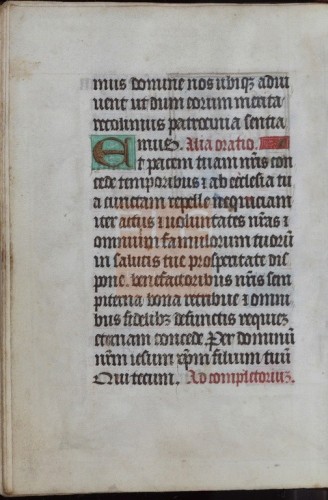 mus domine nos ubiq₃ adiu
vent ut dum eorum merita
recolimus patrocinia sentia
mus. Alia oratio.
Et pacem tuam nr̄is con
cede temporibus ⁊ ab ecclesia tu
a cunctam repelle nequiciam
iter actus ⁊ voluntates nr̄as ⁊
omnium famulorum tuorū
in salutis tue prosperitate dis
pone. benefactoribus nr̄is sem
piterna bona retribue ⁊ omni
bus fidelib₃ defunctis requiē
eternam concede. Per dominū
nr̄m iesum xp̄m filium tuū
Qui tecum. Ad completoriū.